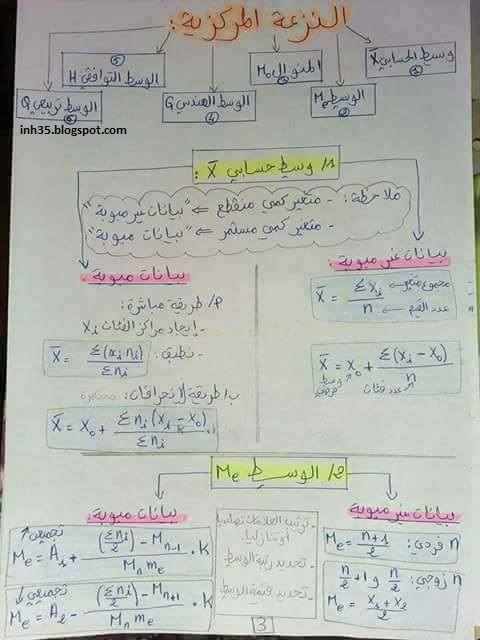 النزعة المركزية:
وسيط الحسابي X̄
①
الوسيط Me
②
المنوال Mo
الوسط الهندسي G
④
الوسط التوافقي H
⑤
الوسط تربيعي Q
⑥
inh35.blogspot.com
1/ وسيط حسابي X̄ :
ملاحظة: - متغير كمي متقطع ⇐ "بيانات غير مبوبة"
- متغير كمي مستمر ⇐ "بيانات مبوبة"
بيانات غير مبوبة:
X̄ = Σxi / n
مجموع
عدد القيم
X̄ = x0 + Σ(xi − x0) / n
وسط فرضي
عدد فئات
بيانات مبوبة:
P/ طريقة مباشرة:
- إيجاد مراكز الفئات xi
- نطبق: X̄ = Σ(xi ni) / Σni
ب/ طريقة الانحرافات: مختصرة
X̄ = X0 + Σni(xi − x0) / Σni
2/ الوسيط Me
بيانات غير مبوبة:
n فردي: Me = n+1 / 2
n زوجي n/2 و n/2+1
Me = x1+x2 / 2
- ترتيب العلامات تصاعديا
أو تنازليا
- تحديد رتبة الوسيط
- تحديد قيمة الوسيط
بيانات مبوبة:
تجميعي ↑
Me = A1 + (Σni/2) − Mn-1 / Mn me . k
تجميعي ↓
Me = A2 − (Σni/2) − Mn+1 / Mn me . k
3